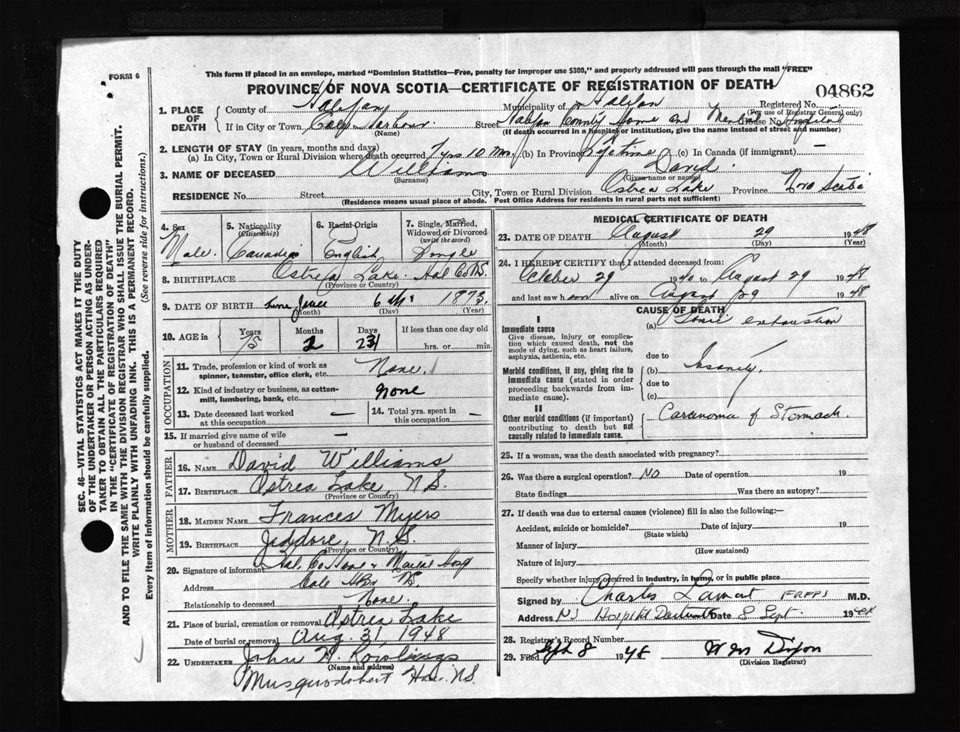 FORM 6
This form if placed in an envelope, marked "Dominion Statistics—Free, penalty for improper use $300," and properly addressed will pass through the mail "FREE"
PROVINCE OF NOVA SCOTIA—CERTIFICATE OF REGISTRATION OF DEATH
04862
1. PLACE OF DEATH
County of Halifax
Municipality of Halifax
Registered No.
(For use of Registrar General only)
If in City or Town, Cole Harbour
(Name)
Street Halifax County Home and Mental Hospital
House No.
(If death occurred in a hospital or institution, give the name instead of street and number)
2. LENGTH OF STAY (in years, months and days)
(a) In City, Town or Rural Division where death occurred 7 yrs 10 Mos (b) In Province Lifetime (c) In Canada (if immigrant) —
3. NAME OF DECEASED Williams David
(Surname) (Given name or names)
RESIDENCE No. Street City, Town or Rural Division Ostrea Lake Province Nova Scotia
(Residence means usual place of abode. Post Office Address for residents in rural parts not sufficient)
4. Sex Male
5. Nationality (Citizenship) Canadian
6. Racial Origin English
7. Single, Married, Widowed or Divorced (write the word) Single
8. BIRTHPLACE Ostrea Lake Hal Co N.S.
(Province or Country)
9. DATE OF BIRTH June 6 1873
(Month) (Day) (Year)
10. AGE in Years 75 Months 2 Days 23
If less than one day old
hrs. or min.
OCCUPATION
11. Trade, profession or kind of work as spinner, teamster, office clerk, etc. None.
12. Kind of industry or business, as cotton-mill, lumbering, bank, etc. none
13. Date deceased last worked at this occupation —
14. Total yrs. spent in this occupation —
15. If married give name of wife or husband of deceased —
FATHER
16. NAME David Williams
17. BIRTHPLACE Ostrea Lake, N.S.
(Province or Country)
MOTHER
18. MAIDEN NAME Frances Myers
19. BIRTHPLACE Jeddore, N.S.
(Province or Country)
20. Signature of informant Hal. Co Home & Mental Hosp
Address Cole Hbr NS
Relationship to deceased None.
21. Place of burial, cremation or removal Ostrea Lake
Date of burial or removal Aug. 31 1948
22. UNDERTAKER John Rowlings
(Name and address)
Musquodoboit Har. N.S.
MEDICAL CERTIFICATE OF DEATH
23. DATE OF DEATH August 29 1948
(Month) (Day) (Year)
24. I HEREBY CERTIFY that I attended deceased from:
October 29 1940 to August 29 1948
and last saw alive on August 29 1948
CAUSE OF DEATH
I
Immediate cause
Give disease, injury or complication which caused death, not the mode of dying, such as heart failure, asphyxia, asthenia, etc.
(a) exhaustion
due to
Morbid conditions, if any, giving rise to immediate cause (stated in order proceeding backwards from immediate cause).
(b) Insanity.
due to
(c)
II
Other morbid conditions (if important) contributing to death but not causally related to immediate cause.
Carcinoma of Stomach.
25. If a woman, was the death associated with pregnancy?
26. Was there a surgical operation? NO Date of operation 19
State findings Was there an autopsy?
27. If death was due to external causes (violence) fill in also the following:—
Accident, suicide or homicide? Date of injury 19
(State which)
Manner of injury
(How sustained)
Nature of injury
Specify whether injury occurred in industry, in home, or in public place
Signed by Charles M.D.
Address NS Hospital Dartmouth Date 8 Sept. 1948
28. Registrar's Record Number
29. Filed Sept 8 1948 Wm Dixon
(Division Registrar)
SEC. 46—VITAL STATISTICS ACT MAKES IT THE DUTY OF THE UNDERTAKER OR PERSON ACTING AS UNDERTAKER TO OBTAIN ALL THE PARTICULARS REQUIRED IN THE "CERTIFICATE OF REGISTRATION OF DEATH" AND TO FILE THE SAME WITH THE DIVISION REGISTRAR WHO SHALL ISSUE THE BURIAL PERMIT.
WRITE PLAINLY WITH UNFADING INK. THIS IS A PERMANENT RECORD.
Every item of information should be carefully supplied. (See reverse side for instructions.)